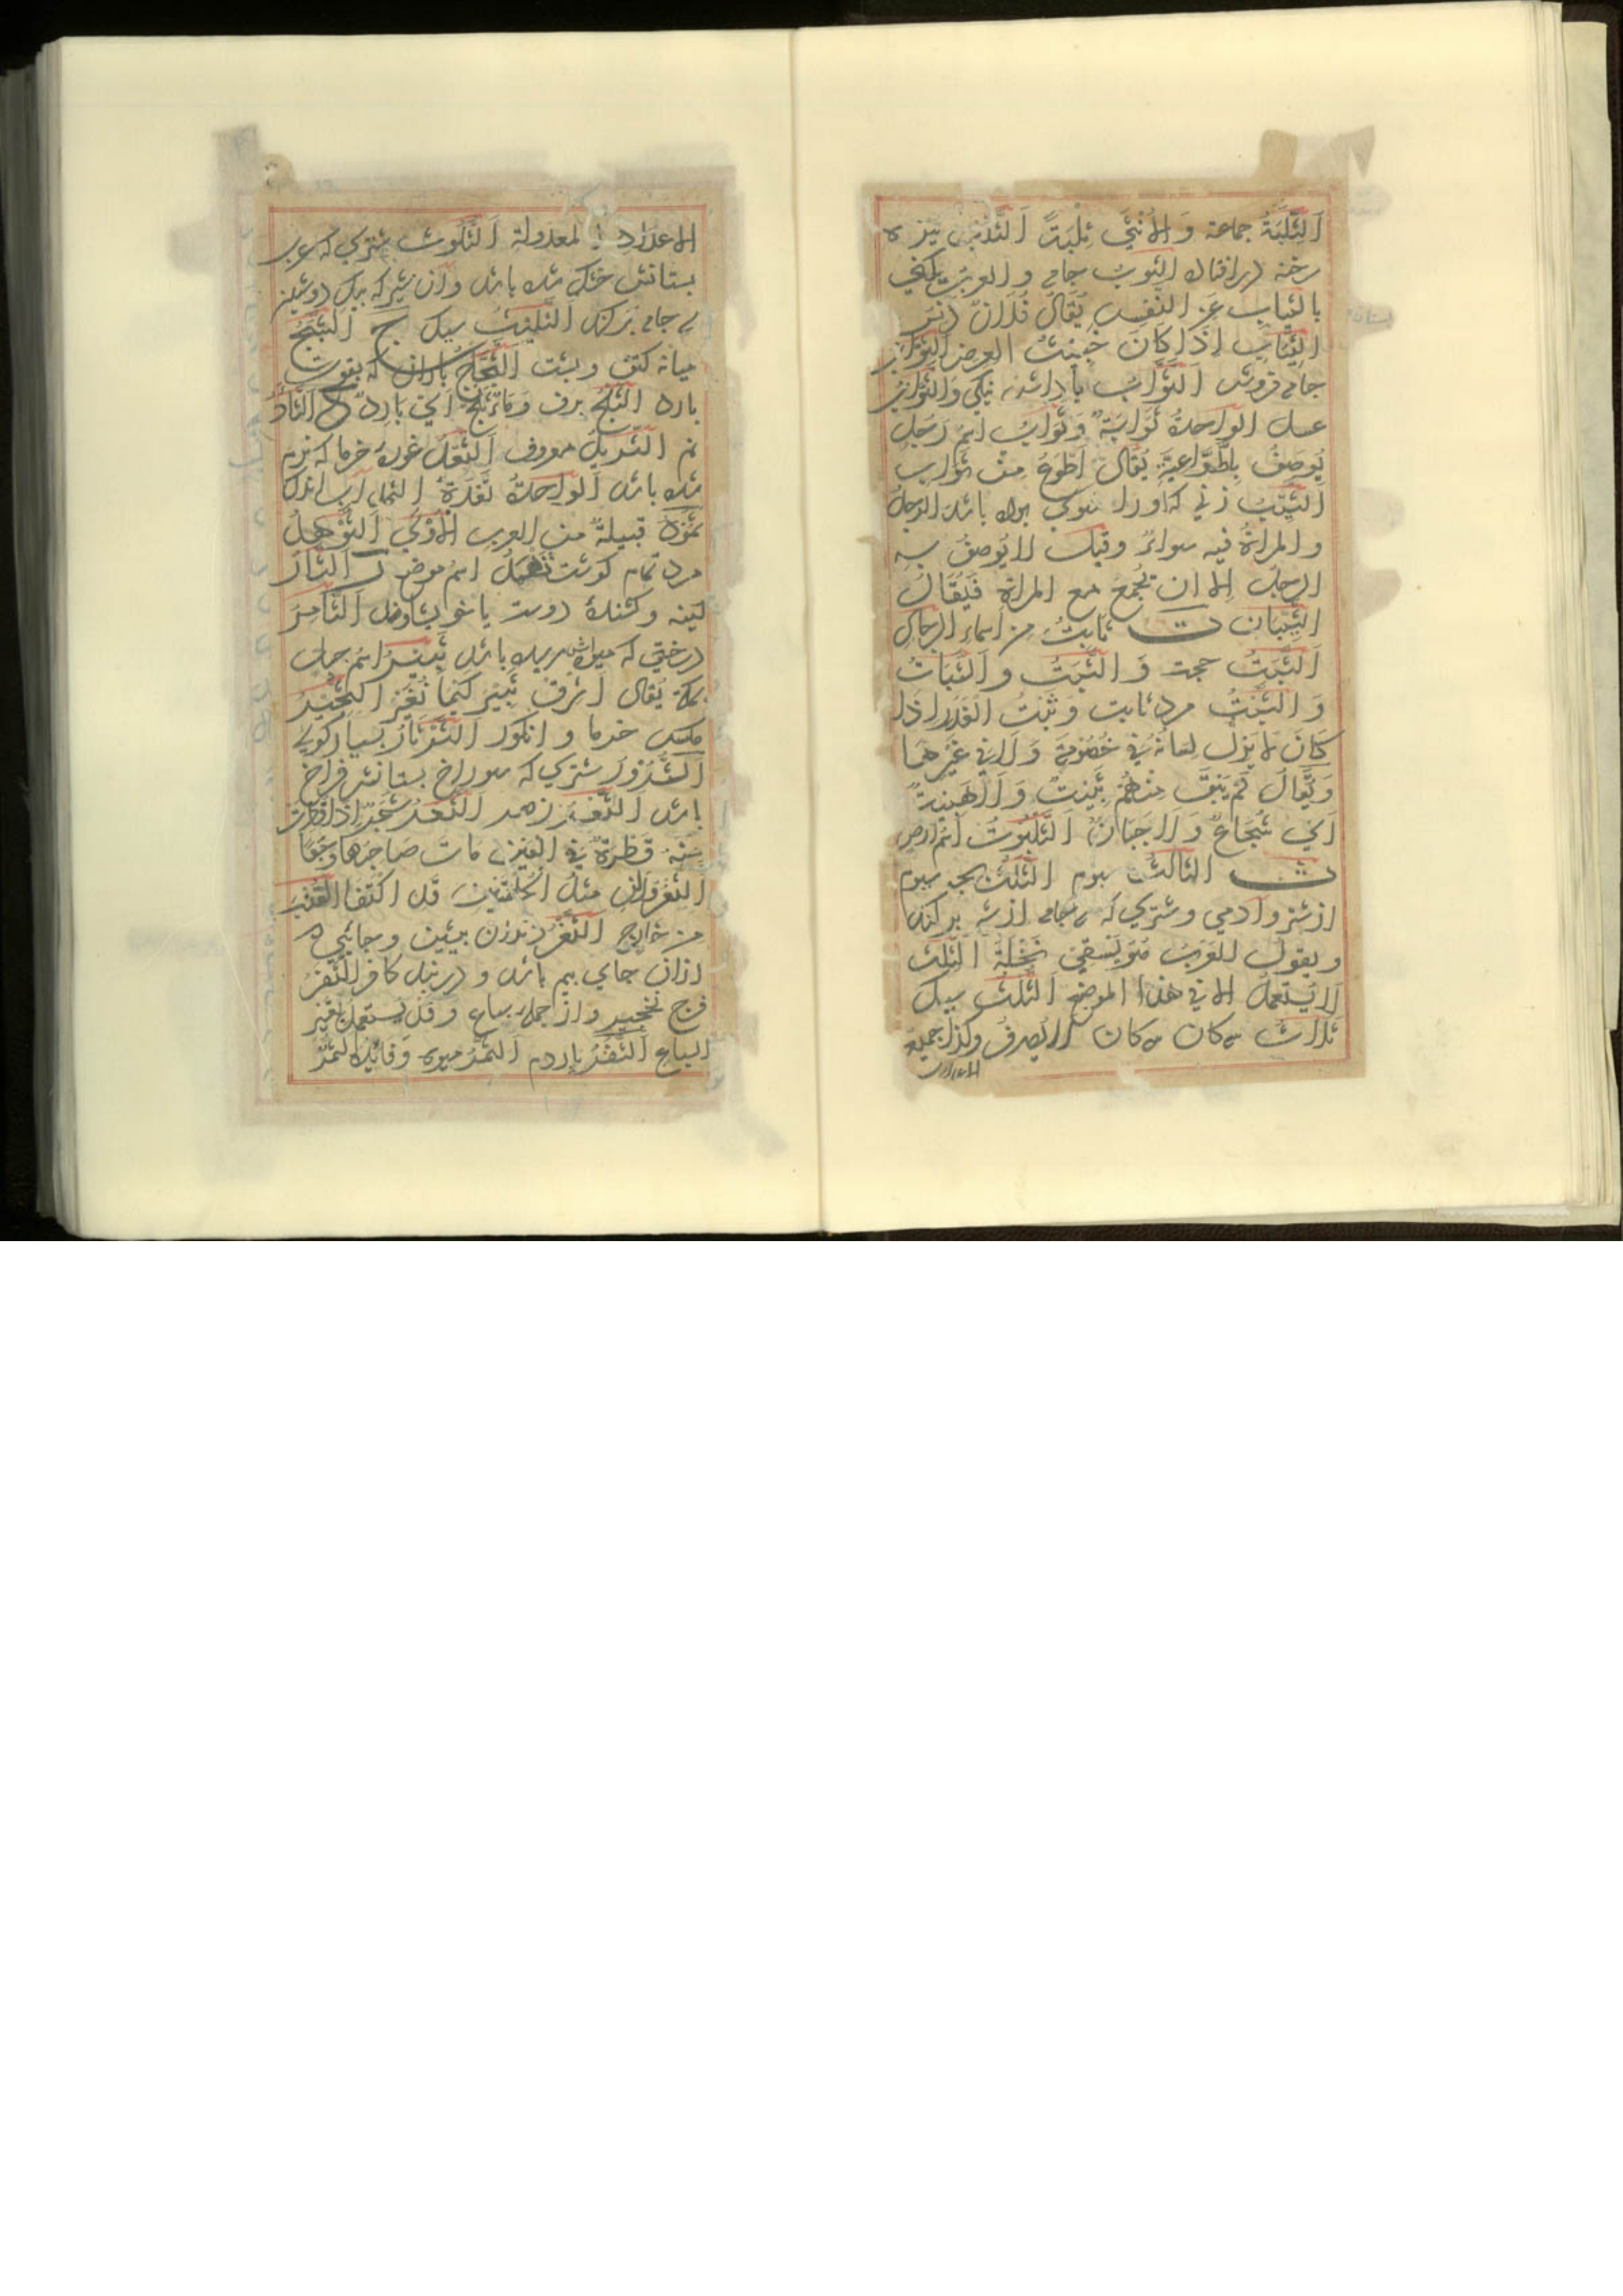 اَلثُّلَّبَةُ جماعة وَ الاُنْثَي ثِلْبَةٌ اَلثَّلْبُ نيزه
رخنه در افتاده الثوبُ جامه و العرب تكني
بالثياب عن النَّفس يُقَالُ فُلَانٌ دَنَسُ
الثياب اِذَا كَانَ خبيثَ العرض الثوَّاب
جامه فروش اَلثَّوَابُ پاداشت نيكي وَ الثواب
عسل الواحدة ثَوَابَةٌ وَ ثَوَابُ اسْمُ رَجُل
يُوصَفُ بِالطَّوَاعِيَةِ يُقَالُ اَطْوَعُ مِنْ ثَوَابٍ
اَلثَّيِّبُ زني كه او را شوي بوده باشد الرجلُ
و المراةُ فيه سواءٌ و قيل لا يُوصَفُ به
الرجل الا ان يُجمَعَ مع المراة فَيُقَالُ
الثيّبان ت ثابتُ من اسماء الرجال
اَلثَّبَتُ حجت وَ الثَّبْتُ و الثَّبَاتُ
وَ الثَّبْتُ مرد ثابت وَ ثَبْتُ الغَدَر اذا
كَانَ لا يَزِل لِسَانُهُ فِي خُصُومَةٍ وَ لَا فِي غَيْرِهَا
وَ يُقَالُ لَمْ يَبْقَ مِنْهُمْ ثَبِيتٌ وَ لَا هَبِيتٌ
اَيْ شُجَاعٌ وَ لَا جَبَانٌ اَلثَّلَبُوتُ اسم ارض
ث الثالث سوم الثلث سوم
از شتر و ادمي و شتري كه سه جامه از شير پر كند
و يقول العرب هُوَ يَسْقِي نَخْلَهُ الثِّلْثَ
لَا يُسْتَعْمَلُ الا في هذا الموضع اَلثُّلُثُ سيك
ثلاث سه كان سه كان لا يُصرف و كذا جميع
الاعداد
الاعداد المعدولة اَلثَّلُوثُ شتري كه سر
پستانش خشك شده باشد و ان شتر كه بيك دوشيدن
سه جامه پر كند الثَّلِيثُ سيك ج الثَّبَجُ
ميانه كتف و پشت الثَّجَّاج باران كه بقوت
بارد الثَّلْجُ برف وَ مَاءٌ ثَلْجٌ اي بَارِدٌ د اَلثَّأَدُ
نم الثَّرِيدُ معروف اَلثَّعْدُ غوره خرما كه نرم
شده باشد اَلواحدةُ ثَعْدَةٌ الثماد آب اندك
ثمود قبيلةٌ من العرب الاُوْلَي اَلثَّوْهَدُ
مرد تمام كوشت ثَهْمَدُ اسم موضع ر اَلثَّأْرُ
كينه و كشنده دوست يا خويشاوند اَلثَّامِرُ
درختي كه ميوه اش رسيده باشد ثَبِيرُ اسمُ جبل
بمكة يُقَالُ اَشْرِقْ ثَبِيرُ كَيْمَا نُغِيرُ اَلثَّجِيرُ
ثفل خرما و انكور اَلثَّرْثَارُ بسيار كوي
اَلثَّرُورُ شتري كه سوراخ پستانش فراخ
باشد الثُّعْرُ زهر الثُّعْرُ شَجَرٌ اِذَا قَطَرَتْ
مِنْهُ قَطْرَةٌ فِي الْعَيْنِ مَاتَ صَاحِبُهَا وَجَعًا
اَلثُّعْرُورَانِ مثلُ الحَلَمَتَيْنِ قَد اكتَنَفَا القُنْبَ
من خارج الثَّغْرُ دندان پيشين و جائي كه
از ان جاي بيم باشد و دربند كافر الثَّفْرُ
فرج نخجير و از جمله سباع وَ قَد يُستعمل لِغَيْرِ
السباع اَلثَّفَرُ پاردم اَلثَّمَرُ ميوه وَ فايده الثَّمَرُ